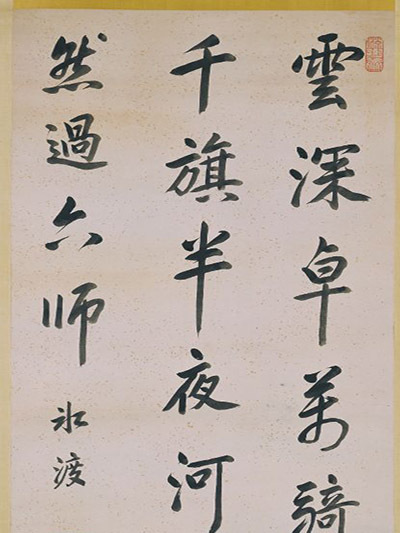 雲深卓萬騎
千旗半夜河
然過六师
冰渡